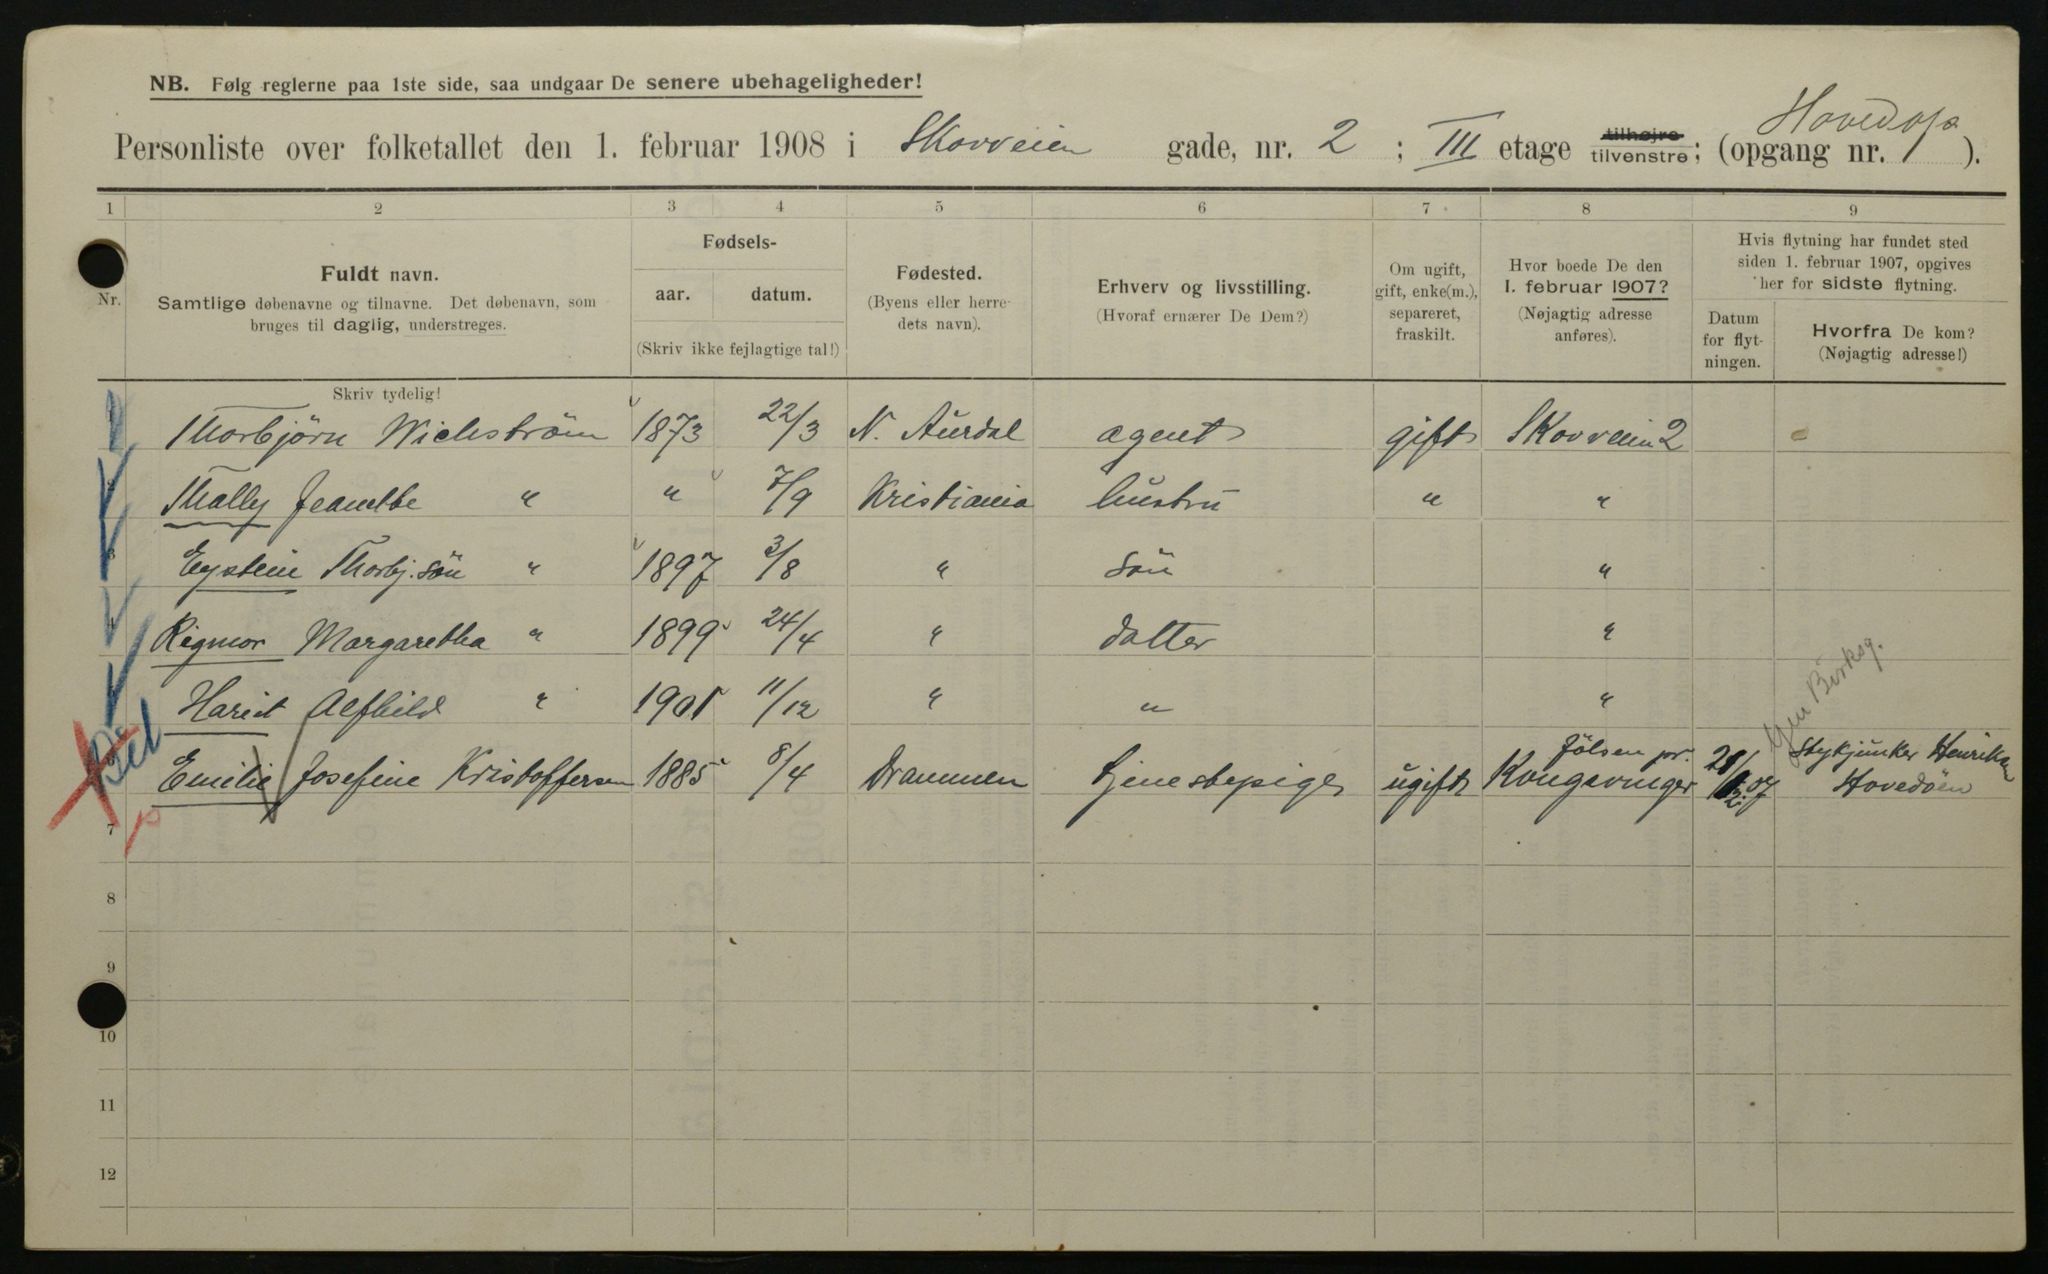 NB. Følg reglerne paa 1ste side, saa undgaar De senere ubehageligheder!
Hovedop
Personliste over folketallet den 1. februar 1908 i Skovveien gade, nr. 2 ; III etage tilhøjre tilvenstre; (opgang nr. 1 ).
1 2 3 4 5 6 7 8 9
Nr.
Fuldt navn.
Samtlige døbenavne og tilnavne. Det døbenavn, som
bruges til daglig, understreges.
Skriv tydelig!
Fødsels-
aar. datum.
(Skriv ikke fejlagtige tal!)
Fødested.
(Byens eller herre-
dets navn).
Erhverv og livsstilling.
(Hvoraf ernærer De Dem?)
Om ugift,
gift, enke(m.),
separeret,
fraskilt.
Hvor boede De den
1. februar 1907?
(Nøjagtig adresse
anføres).
Hvis flytning har fundet sted
siden 1. februar 1907, opgives
her for sidste flytning.
Datum
for flyt-
ningen.
Hvorfra De kom?
(Nøjagtig adresse!)
1 Thorbjörn Wichström 1873 22/3 N. Aurdal agent gift Skovveien 2
2 Thally " " 7/9 Kristiania hustru " "
3 Eystein Thorbj.sön " 1897 3/8 " sön "
4 Rigmor Margaretha " 1899 24/4 " datter "
5 Hariet Alfhild " 1901 11/12 " " "
Emilie Josefine Kristoffersen 1885 8/4 Drammen tjenestepige ugift Kongsvinger 07 Stykjunker Henriksen
Hovedöen
7
8
9
10
11
12